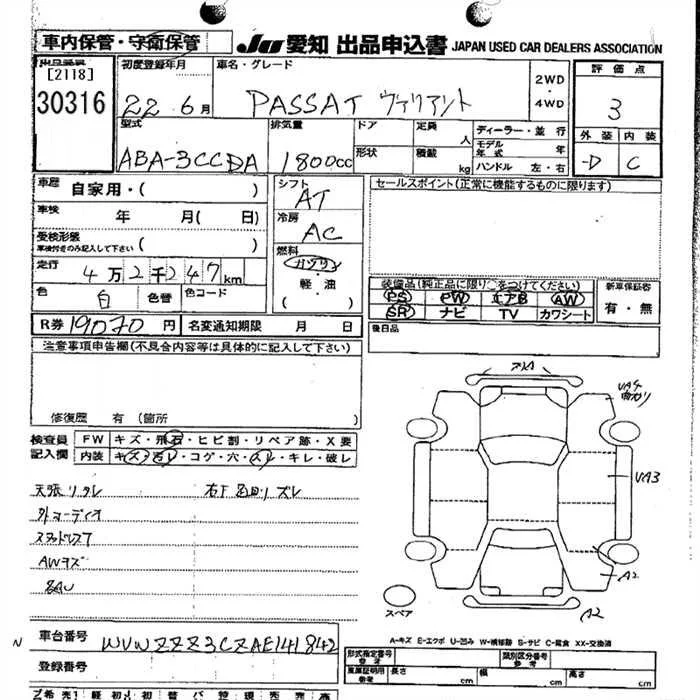 車内保管・守衛保管
JU 愛知 出品申込書 JAPAN USED CAR DEALERS ASSOCIATION
出品番号
[2118]
30316
初度登録年月
22 6月
車名・グレード
PASSAT ヴァリアント
2WD
・
4WD
評価点
3
外装 内装
-D C
型式
ABA-3CCDA
排気量
1800cc
ドア
形状
定員 人
積載 kg
ディーラー・並行
モデル年式 年
ハンドル 左・右
車歴 自家用・( )
車検 年 月( 日)
受検形態
車検付きのみ記入して下さい ( )
走行 4万2千247km
色 白 色替 色コード
R券 19070円 名変通知期限 月 日
シフト
AT
冷房
AC
燃料
ガソリン
軽・油
( )
セールスポイント(正常に機能するものに限ります)
装備品(純正品に限り○をつけてください)
PS PW エアB AW
SR ナビ TV カワシート
新車保証書
有・無
後日品
注意事項申告欄(不具合内容等は具体的に記入して下さい)
修復歴 有 (箇所 )
検査員
記入欄
FW キズ・飛石・ヒビ割・リペア跡・X要
内装 キズ・汚レ・コゲ・穴・スレ・キレ・破レ
天張リタレ
外オーディオ
スタッドレス7
AWキズ
UA4
UA3
A2
A2
スペア
A-キズ E-エクボ U-凹み W-補修跡 S-サビ C-腐食 XX-交換済
N
車台番号 WVWZZZ3CZAE141842
登録番号
形式指定番号
参考
類別区分番号
参考
車庫証明用
参考
長さ cm 幅 cm 高さ cm